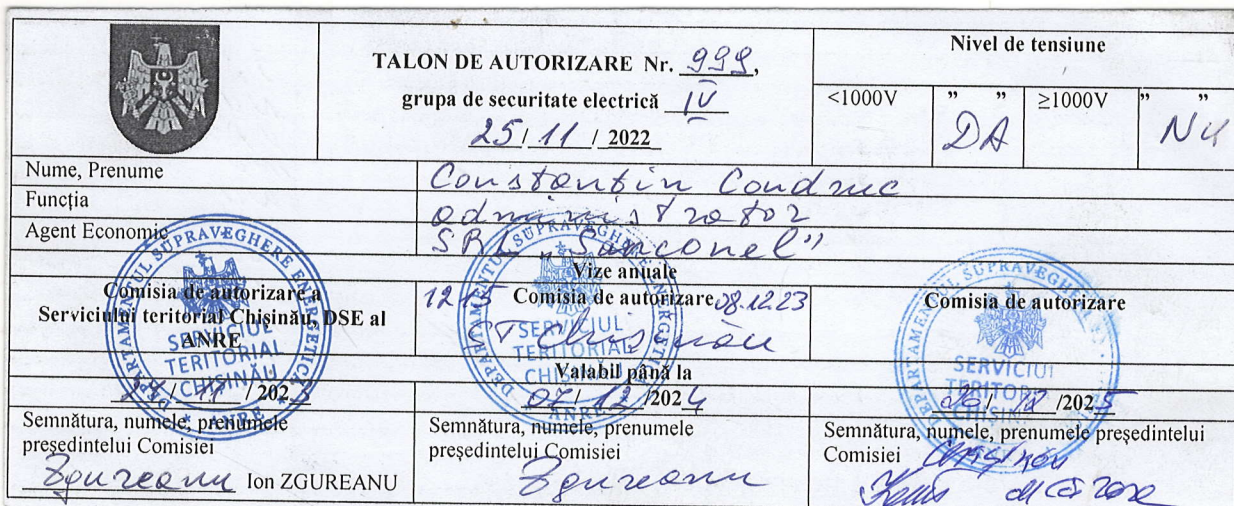 TALON DE AUTORIZARE Nr. 999,
grupa de securitate electrică IV
25 / 11 / 2022
Nivel de tensiune
<1000V " DA " ≥1000V " Nu "
Nume, Prenume Constantin Condruc
Funcția administrator
Agent Economic SRL „Sanconel"
Vize anuale
Comisia de autorizare a
Serviciului teritorial Chișinău, DSE al
ANRE
24 / 11 / 2023
Semnătura, numele, prenumele
președintelui Comisiei
Zgureanu Ion ZGUREANU
1215 Comisia de autorizare 08.12.23
ST Chișinău
Valabil până la
07 / 12 / 2024
Semnătura, numele, prenumele
președintelui Comisiei
Zgureanu
Comisia de autorizare
/ 12 / 2025
Semnătura, numele, prenumele președintelui
Comisiei Chișinău
DEPARTAMENTUL SUPRAVEGHERE ENERGETICĂ
SERVICIUL
TERITORIAL
CHIȘINĂU
ANRE
DEPARTAMENTUL SUPRAVEGHERE ENERGETICĂ
SERVICIUL
TERITORIAL
CHIȘINĂU
ANRE
DEPARTAMENTUL SUPRAVEGHERE
SERVICIUL
TERITORIAL
CHIȘINĂU